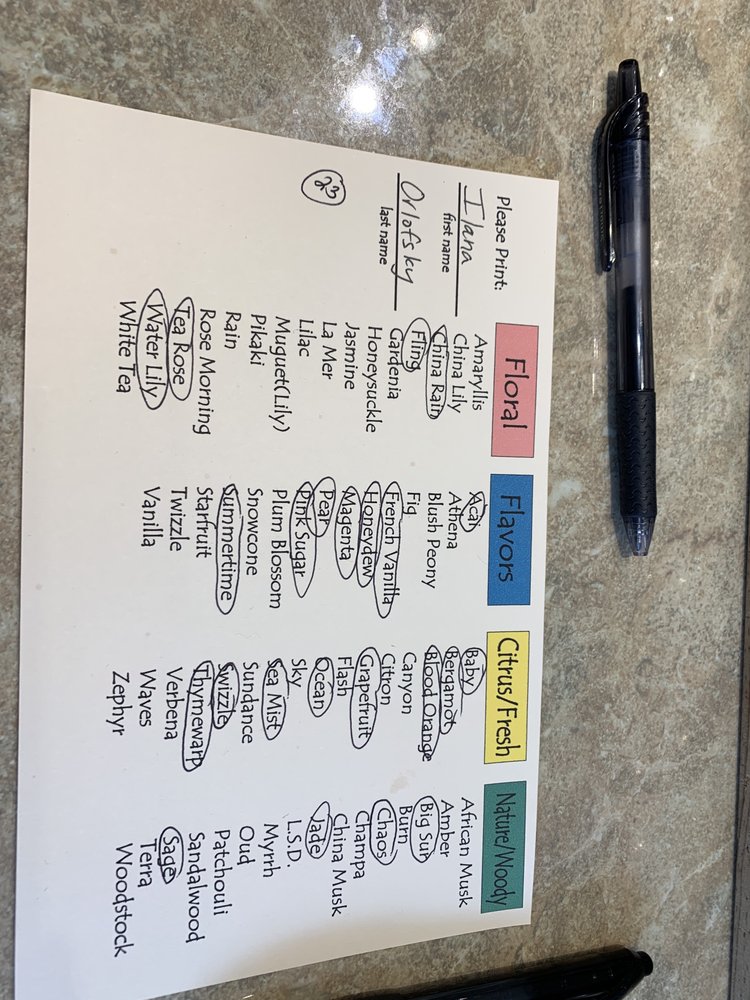 Please Print:
Ilana
first name
Orlofsky
last name
23
Floral
Amaryllis
China Lily
China Rain
Fling
Gardenia
Honeysuckle
Jasmine
La Mer
Lilac
Muguet(Lily)
Pikaki
Rain
Rose Morning
Tea Rose
Water Lily
White Tea
Flavors
Acai
Athena
Blush Peony
Fig
French Vanilla
Honeydew
Magenta
Pear
Pink Sugar
Plum Blossom
Snowcone
Summertime
Starfruit
Twizzle
Vanilla
Citrus/Fresh
Baby
Bergamot
Blood Orange
Canyon
Citron
Grapefruit
Flash
Ocean
Sky
Sea Mist
Sundance
Swizzle
Thymewarp
Verbena
Waves
Zephyr
Nature/Woody
African Musk
Amber
Big Sur
Burn
Chaos
Champa
China Musk
Jade
L.S.D.
Myrrh
Oud
Patchouli
Sandalwood
Sage
Terra
Woodstock